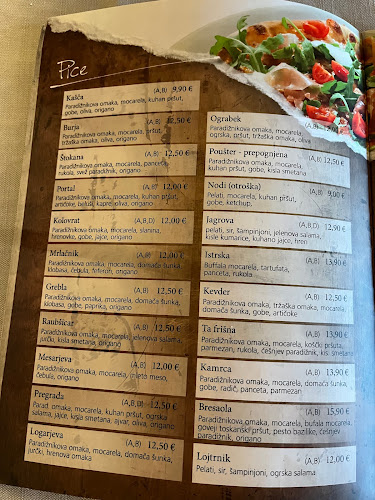 Pice
Kašča (A,B) 9,90 €
Paradižnikova omaka, mocarela, kuhan pršut,
gobe, oliva, origano
Burja (A,B) 12,50 €
Paradižnikova omaka, mocarela, pršut,
tržaška omaka, oliva, origano
Štokana (A,B) 12,50 €
Paradižnikova omaka, mocarela, panceta,
rukola, svež paradižnik, origano
Portal (A,B) 12,00 €
Paradižnikova omaka, mocarela, kuhan pršut,
artičoke, bučuš, kapre, oliva, origano
Kolovrat (A,B,D) 12,00 €
Paradižnikova omaka, mocarela, slanina,
hrenovke, gobe, jajce, origano
Mrlačnik (A,B) 12,00 €
Paradižnikova omaka, mocarela, domača šunka,
klobasa, čebula, feferon, origano
Grebla (A,B) 12,50 €
Paradižnikova omaka, mocarela, domača šunka,
klobasa, gobe, paprika, origano
Raubšicar (A,B) 12,50 €
Paradižnikova omaka, mocarela, jelenova salama,
jurčki, kisla smetana, origano
Mesarjeva (A,B) 12,00 €
Paradižnikova omaka, mocarela, mleto meso,
čebula, origano
Pregrada (A,B,D) 12,50 €
Parad. omaka, mocarela, kuhan pršut, ogrska
salama, jajce, kisla smetana, ajvar, oliva, origano
Logarjeva (A,B) 12,50 €
Paradižnikova omaka, mocarela, domača šunka,
jurčki, hrenova omaka
Ograbek (A,B) 12,00 €
Paradižnikova omaka, mocarela,
ogrska, pršut, tržaška omaka, oliva
Poušter - prepognjena (A,B) 12,50 €
Paradižnikova omaka, mocarela,
kuhan pršut, gobe, kisla smetana
Nodi (otroška) (A,B) 12,00 €
Pelati, mocarela, kuhan pršut,
gobe, ketchup,
Jagrova (A,B,D) 12,90 €
pelati, sir, šampinjoni, jelenova salama,
kisle kumarice, kuhano jajce, hren
Istrska (A,B) 13,90 €
Buffala mocarela, tartufata,
panceta, rukola
Kevder (A,B) 12,50 €
Paradižnikova omaka, tržaška omaka, mocarela,
domača šunka, gobe, artičoke
Ta frišna (A,B) 13,90 €
Paradižnikova omaka, mocarela, kočški pršut,
parmezan, rukola, češnjev paradižnik, kis. smetana
Kamrca (A,B) 13,90 €
Paradižnikova omaka, mocarela, domača šunka,
gobe, radič, panceta, parmezan
Bresaola (A,B) 15,90 €
Paradižnikova omaka, mocarela, bufala mocarela,
goveji toskanski pršut, pesto bazilike, češnjev
paradižnik, origano
Lojtrnik (A,B) 12,00 €
Pelati, sir, šampinjoni, ogrska salama